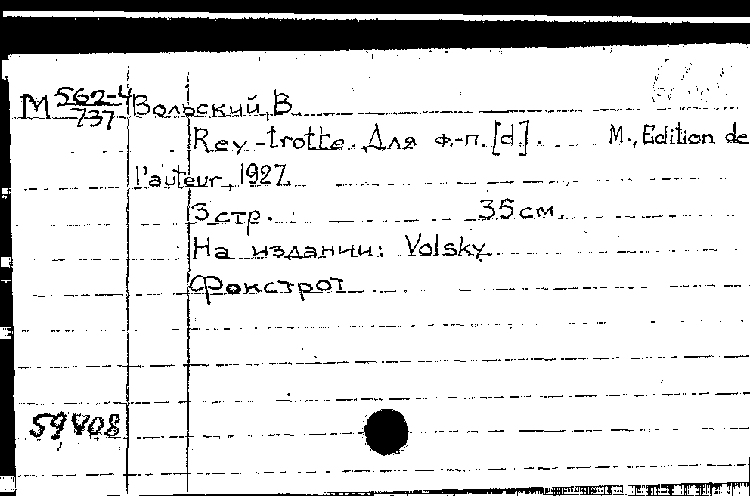 М 562-4/737 Вольский, В.
Rey-trotte. Для ф.-п. [d]. М., Edition de
l'auteur, 1927.
3 стр. 35 см.
На издании: Volsky.
Фокстрот